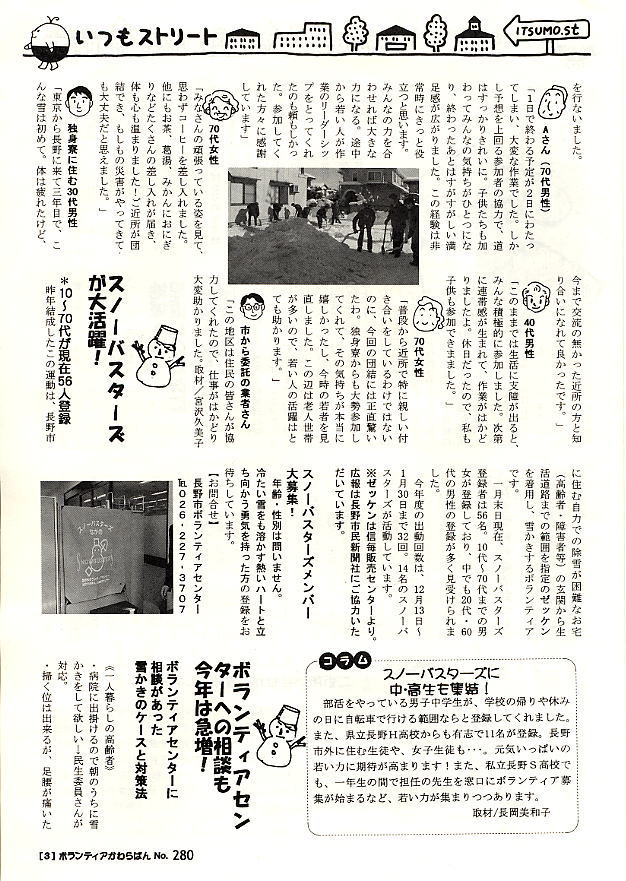 いつもストリート
ITSUMO.st
を行ないました。
Aさん(70代男性)
「1日で終わる予定が2日にわたっ
てしまい、大変な作業でした。しか
し予想を上回る参加者の協力で、道
はすっかりきれいに。子供たちも加
わってみんなの気持ちがひとつにな
り、終わったあとはすがすがしい満
足感が広がりました。この経験は非
常時にきっと役
立つと思います。
みんなの力を合
わせれば大きな
力になる。途中
から若い人が作
業のリーダーシッ
プをとってくれ
たのも頼もしかっ
た。参加してく
れた方々に感謝
しています」
70代女性
「みなさんの頑張っている姿を見て、
思わずコーヒーを差し入れました。
他にもお茶、葛湯、みかんにおにぎ
りなどたくさんの差し入れが届き、
体も心も温まりました!ご近所が団
結でき、もしもの災害がやってきて
も大丈夫だと思えました。」
独身寮に住む30代男性
「東京から長野に来て三年目で、こ
んな雪は初めて。体は疲れたけど、
今まで交流の無かった近所の方と知
り合いになれて良かったです。」
40代男性
「このままでは生活に支障が出ると、
みんな積極的に参加しました。次第
に連帯感が生まれて、作業がはかど
りましたよ。休日だったので、私も
子供も参加できました。」
70代女性
「普段から近所で特に親しい付
き合いをしているわけではない
のに、今回の団結には正直驚い
たわ。独身寮からも大勢参加し
てくれて、その気持ちが本当に
嬉しかったし、今時の若者を見
直しました。この辺は老人世帯
が多いので、若い人の活躍はと
ても助かります。」
市から委託の業者さん
「この地区は住民の皆さんが協
力してくれたので、仕事がはかどり
大変助かりました。取材/宮沢久美子
スノーバスターズ
が大活躍!
*10~70代が現在56人登録
昨年結成したこの運動は、長野市
に住む自力での除雪が困難なお宅
(高齢者・障害者等)の玄関から生
活道路までの範囲を指定のゼッケン
を着用し、雪かきするボランティア
です。
一月末日現在、スノーバスターズ
登録者は56名。10代~70代までの男
女が登録しており、中でも20代・60
代の男性の登録が多く見受けられま
した。
今年度の出動回数は、12月13日~
1月30日まで32回。14名のスノーバ
スターズが活動しています。
※ゼッケンは信毎販売センターより。
広報は長野市民新聞社にご協力いた
だいています。
スノーバスターズメンバー
大募集!
年齢・性別は問いません。
冷たい雪をも溶かす熱いハートと立
ち向かう勇気を持った方の登録をお
待ちしています。
【お問合せ】
長野市ボランティアセンター
℡026-227-3707
スノーバスターズ
コラム
スノーバスターズに
中・高生も集結!
部活をやっている男子中学生が、学校の帰りや休み
の日に自転車で行ける範囲ならと登録してくれました。
また、県立長野H高校からも有志で11名が登録。長野
市外に住む生徒や、女子生徒も・・・。元気いっぱいの
若い力に期待が高まります!また、私立長野S高校で
も、一年生の間で担任の先生を窓口にボランティア募
集が始まるなど、若い力が集まりつつあります。
取材/長岡美和子
ボランティアセン
ターへの相談も
今年は急増!
ボランティアセンターに
相談があった
雪かきのケースと対策法
《一人暮らしの高齢者》
・病院に出掛けるので朝のうちに雪
かきをして欲しい→民生委員さんが
対応。
・掃く位は出来るが、足腰が痛いた
[3]ボランティアかわらばん No. 280